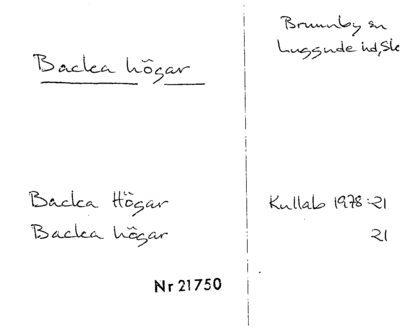 Brunnby sn
Luggude hd, Sk
Backa högar
Backa Högar
Kullab 1978:21
Backa högar
21
Nr 21750